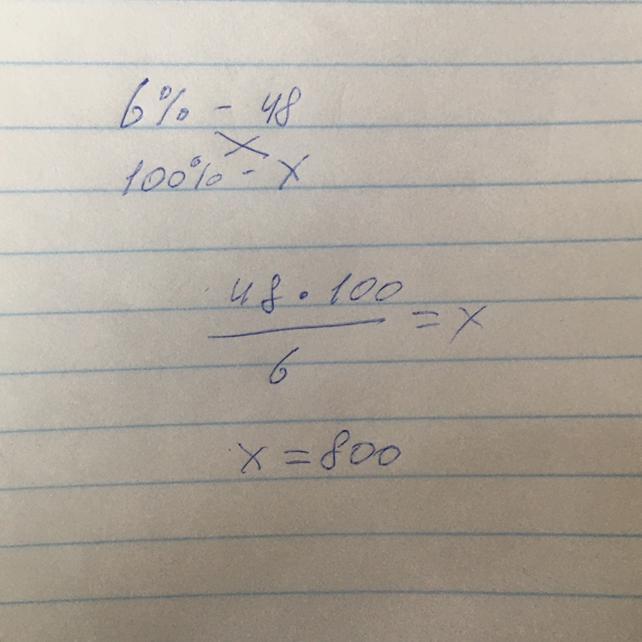 6% - 48
100% - x
48 · 100
6
= x
x = 800